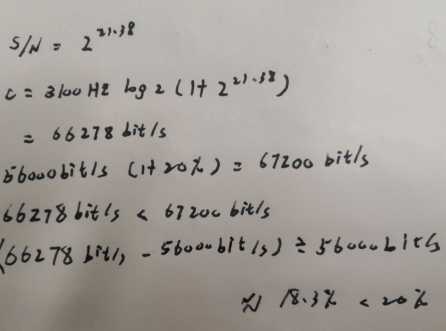 S/N = 2^21.38
C = 3100 HZ log 2 (1+ 2^21.38)
= 66278 bit/s
56000bit/s (1+20%) = 67200 bit/s
66278 bit/s < 67200 bit/s
(66278 bit/s - 56000bit/s) ÷ 56000bit/s
≈ 18.3% < 20%